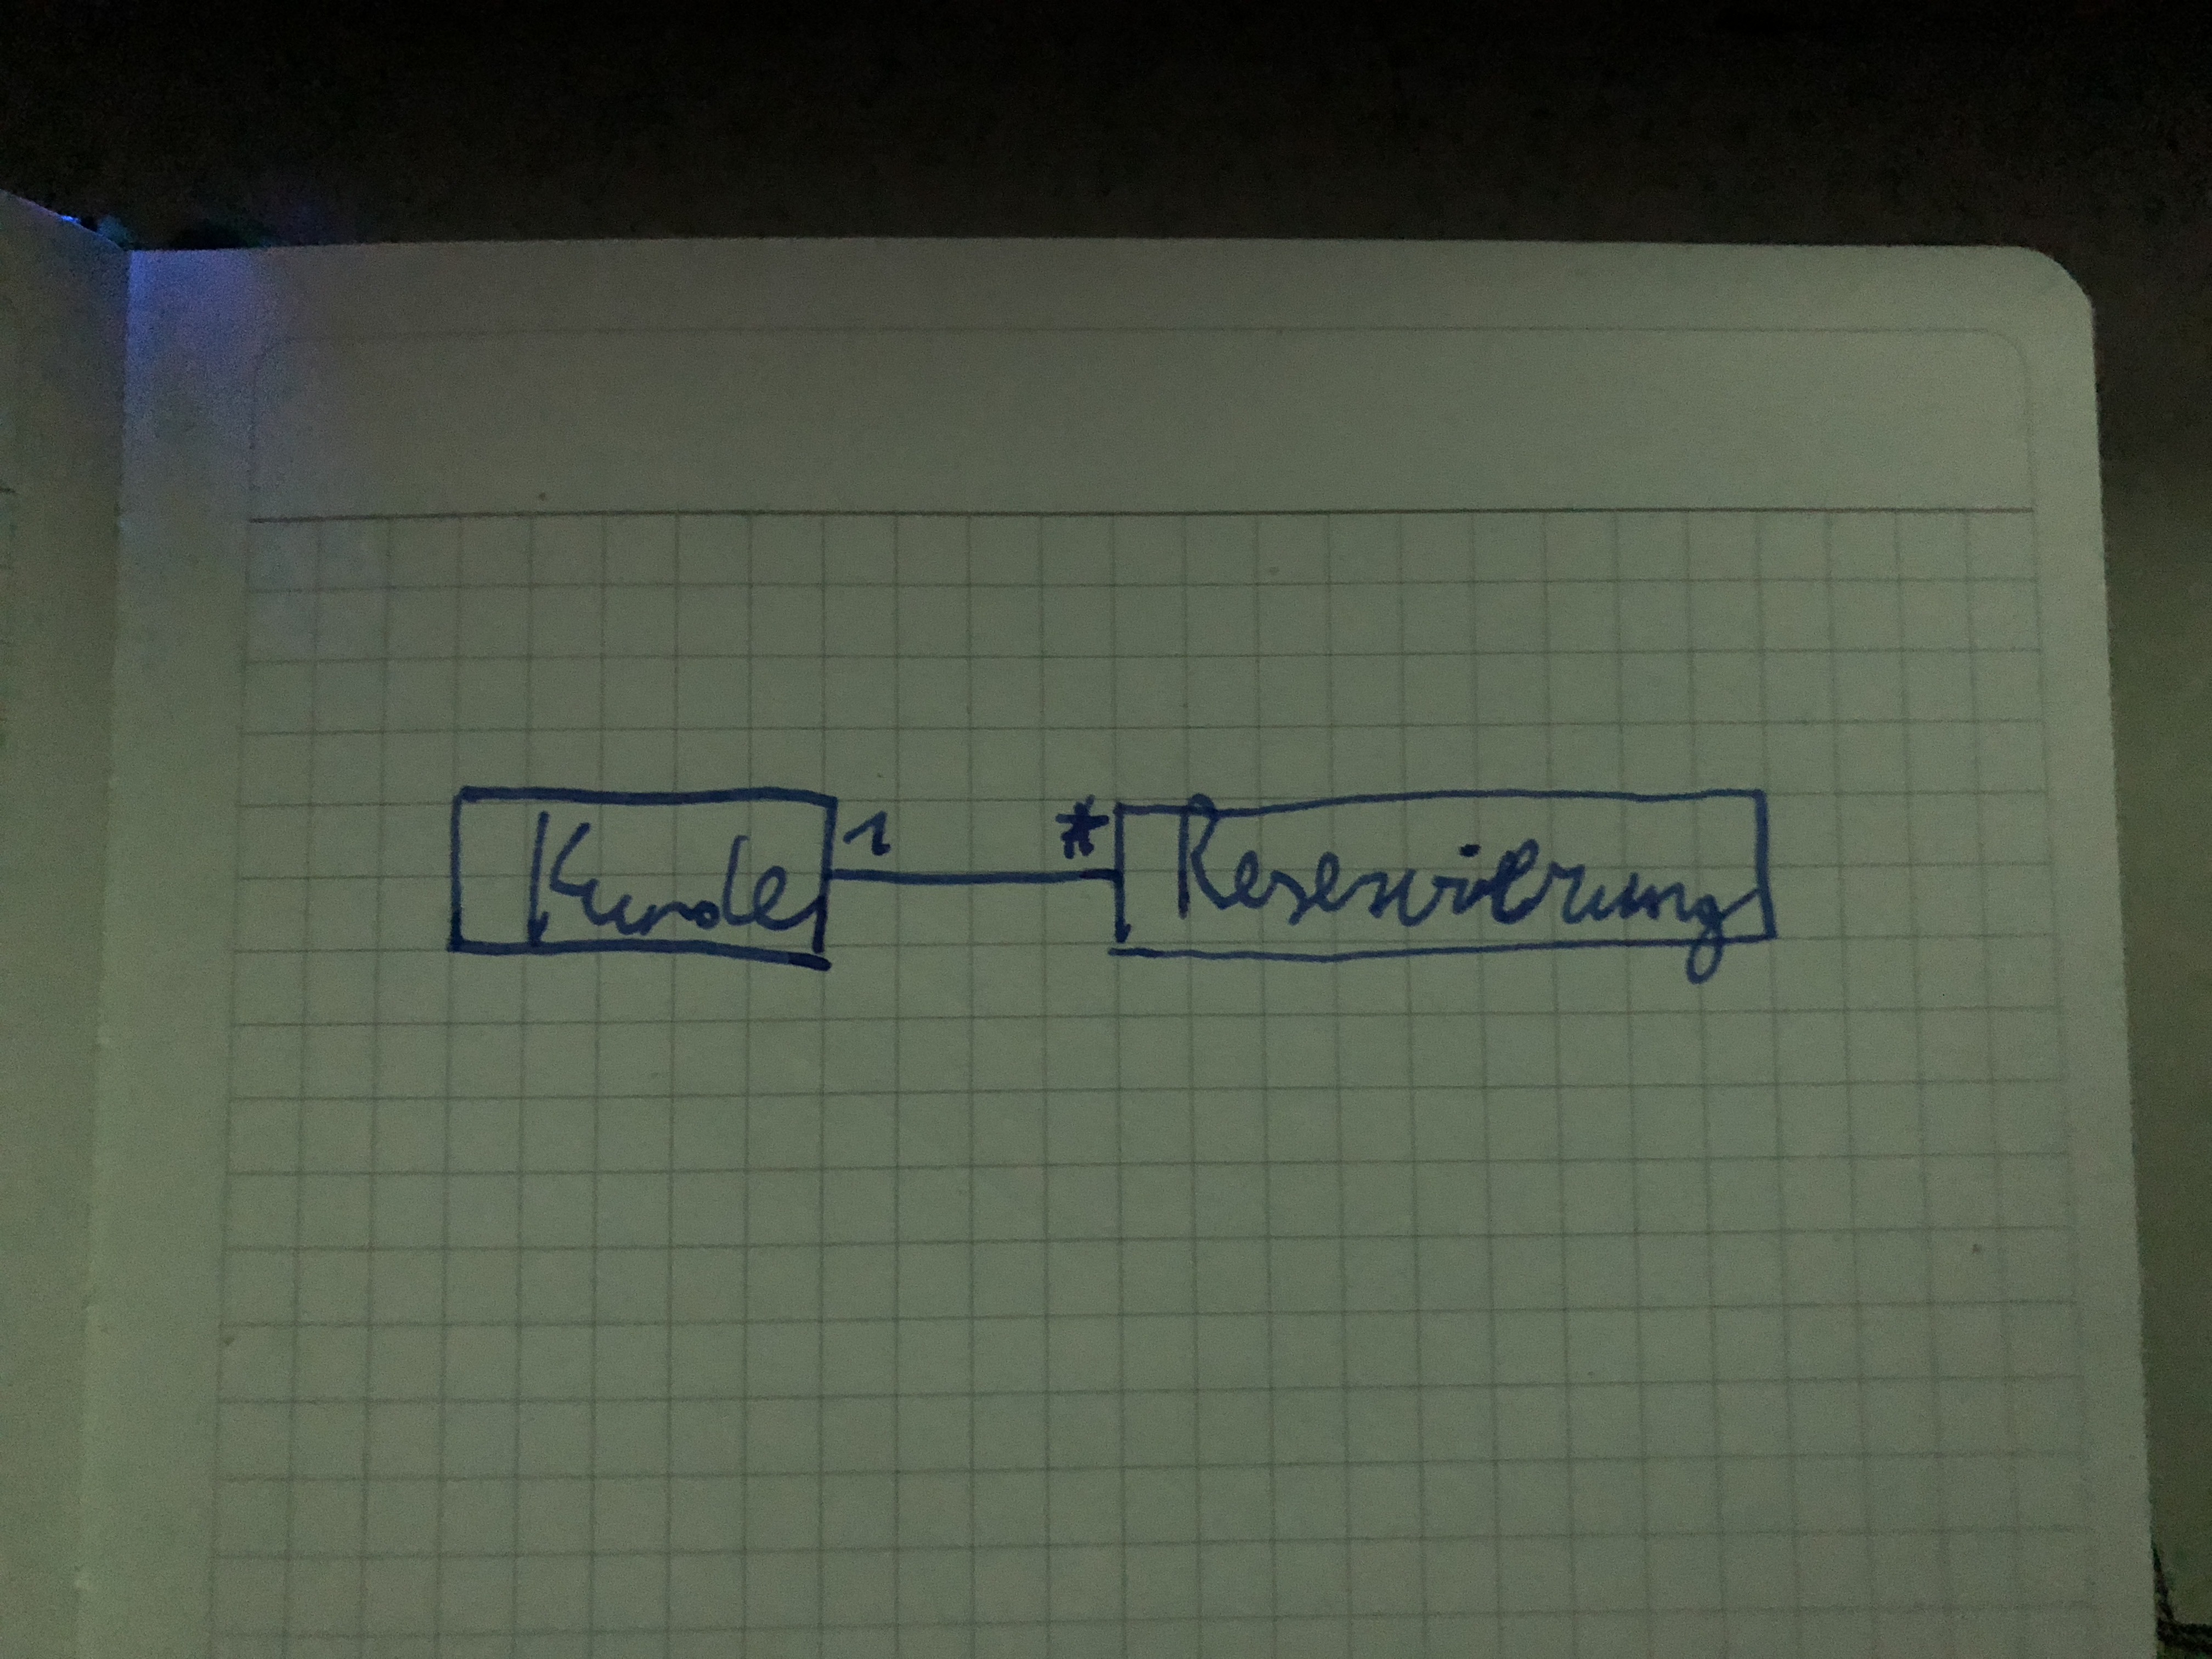 Kunde 1 * Reservierung